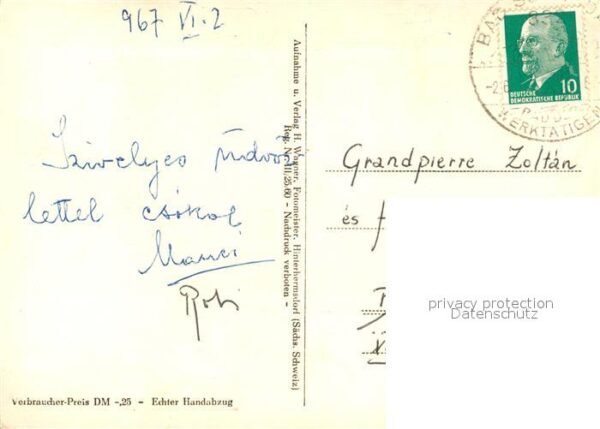 967 VI. 2
Szivelyes üdvöz
lettel csókol
Manci
Robi
Aufnahme u. Verlag H. Wagner, Fotomeister, Hinterhermsdorf (Sächs. Schweiz)
Reg. Nr. III/25/60 – Nachdruck verboten –
Verbraucher-Preis DM -,25 – Echter Handabzug
BAD
WERKTÄTIGEN
10
DEUTSCHE
DEMOKRATISCHE REPUBLIK
Grandpierre Zoltán
és
privacy protection
Datenschutz